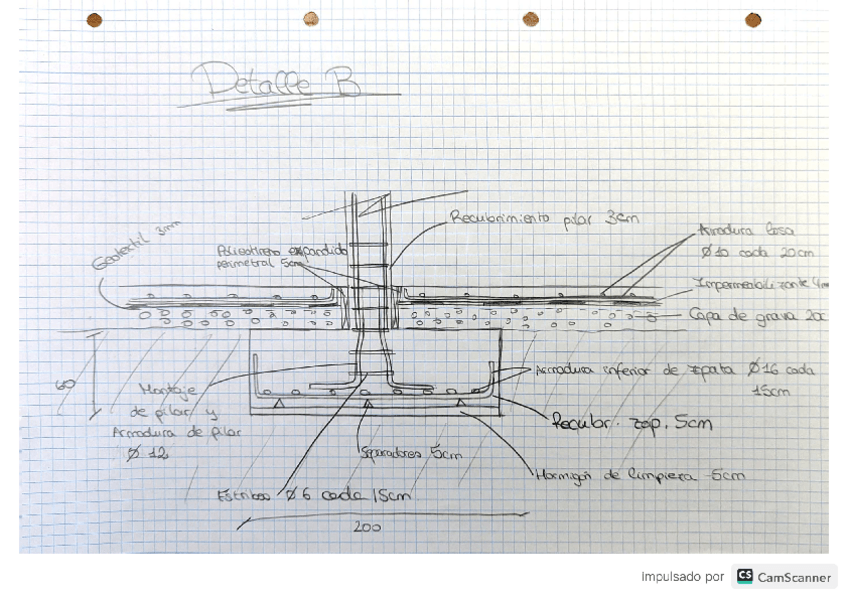 Detalle B
Recubrimiento pilar 3cm
Armadura losa
Ø10 cada 20cm
Geotextil 3mm
Poliestireno expandido
perimetral 5cm
Impermeabilizante 4m
Capa de grava 20
60
Armadura inferior de zapata Ø16 cada
15cm
Montaje
de pilar y
Armadura de pilar
Ø12
Recubr. zap. 5cm
Separadores 5cm
Hormigón de limpieza 5cm
Estribos Ø6 cada 15cm
200
Impulsado por CS CamScanner